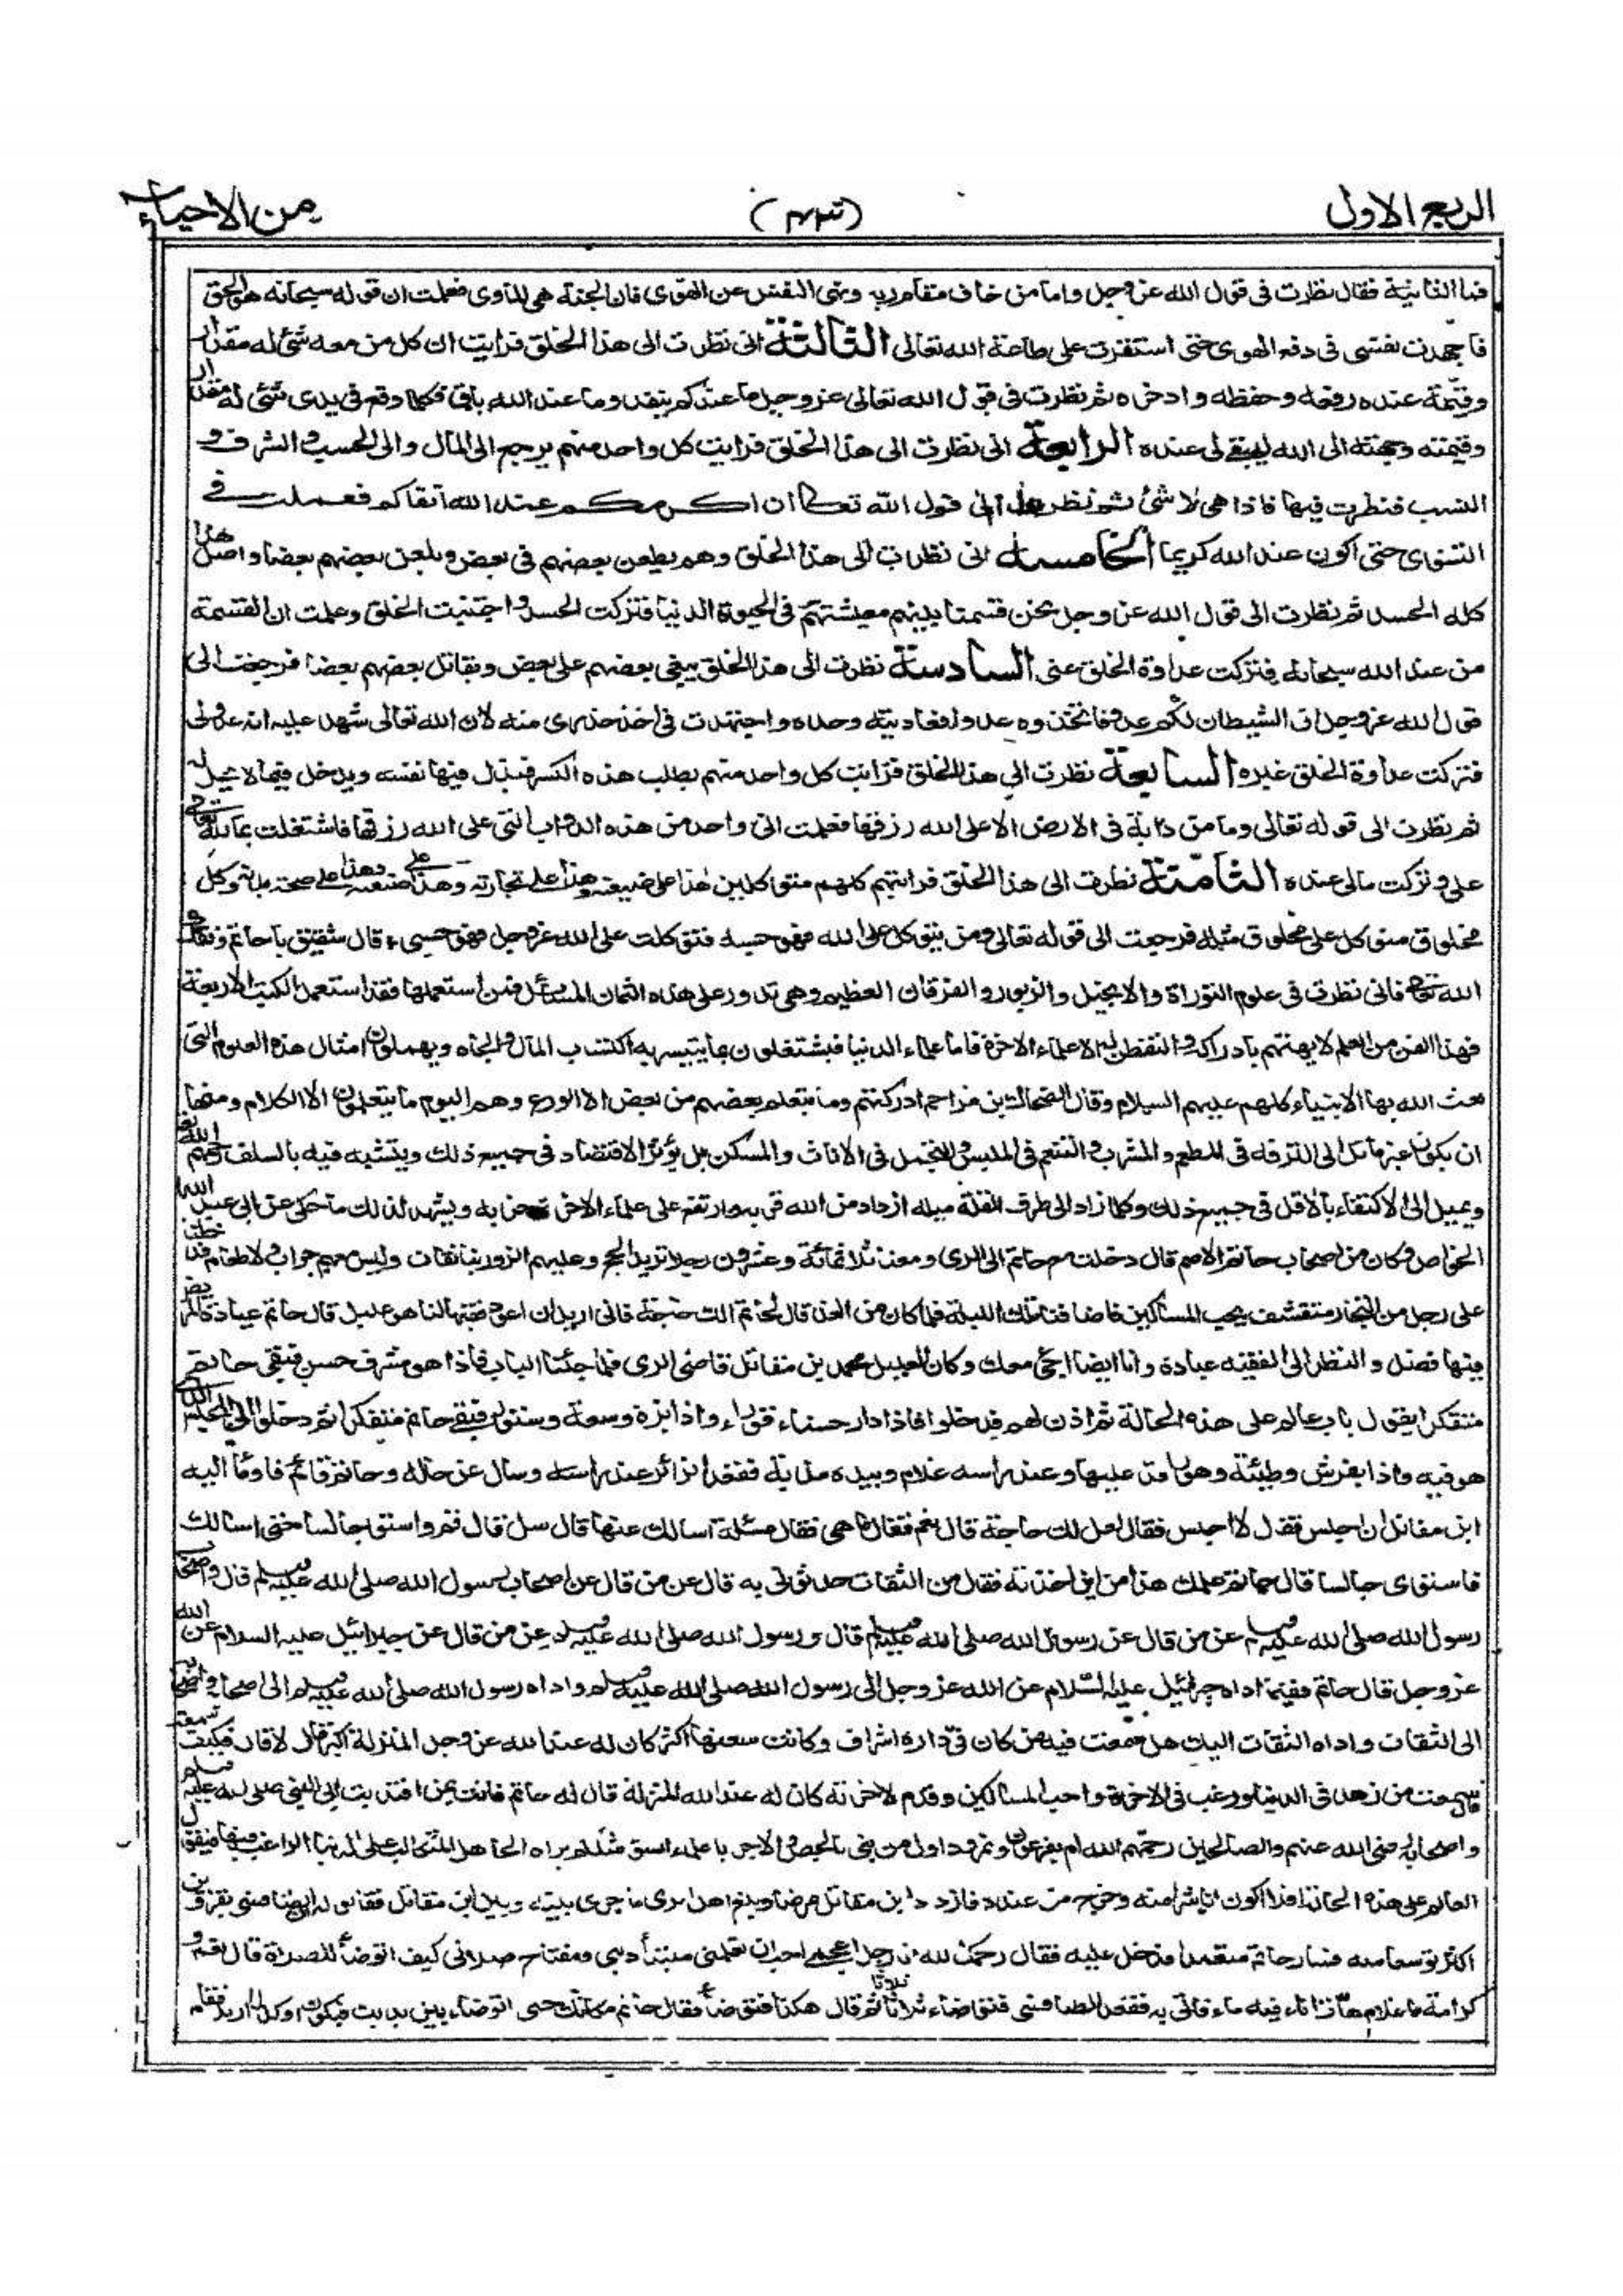 الربع الاول
من الاحياء
فما الثانية فقال نظرت فى قول الله عز وجل واما من خاف مقام ربه ونهى النفس عن الهوى فان الجنة هى الماوى فعلمت ان قوله سبحانه هو الحق
فاجهدت نفسى فى دفع الهوى حتى استقرت على طاعة الله تعالى الثالثة انى نظرت الى هذا الخلق فرايت ان كل من معه شئ له مقدار
وقيمة عنده رفعه وحفظه ثم نظرت فى قول الله تعالى عز وجل ما عندكم ينفد وما عند الله باق فكلما وقع فى يدى شئ له مقدار
وقيمته وجهته الى الله ليبقى لى عنده الرابعة انى نظرت الى هذا الخلق فرايت كل واحد منهم يرجع الى المال والى الحسب والشرف و
النسب فنظرت فيها فاذا هى لا شئ ثم نظرت الى قول الله تعالى ان اكرمكم عند الله اتقاكم فعملت فى
التقوى حتى اكون عند الله كريما الخامسة انى نظرت الى هذا الخلق وهم يطعن بعضهم فى بعض ويلعن بعضهم بعضا واصل هذا
كله الحسد ثم نظرت الى قول الله عز وجل نحن قسمنا بينهم معيشتهم فى الحيوة الدنيا فتركت الحسد واجتنبت الخلق وعلمت ان القسمة
من عند الله سبحانه فتركت عداوة الخلق عنى السادسة نظرت الى هذا الخلق يبغى بعضهم على بعض ويقاتل بعضهم بعضا فرجعت الى
قول الله عز وجل ان الشيطان لكم عدو فاتخذوه عدوا فعاديته وحده واجتهدت فى اخذ حذرى منه لان الله تعالى شهد عليه انه عدو لى
فتركت عداوة الخلق غيره السابعة نظرت الى هذا الخلق فرايت كل واحد منهم يطلب هذه الكسرة فيذل فيها نفسه ويدخل فيما لا يحل له
ثم نظرت الى قوله تعالى وما من دابة فى الارض الا على الله رزقها فعلمت انى واحد من هذه الدواب التى على الله رزقها فاشتغلت بما لله تعالى
على وتركت مالى عنده الثامنة نظرت الى هذا الخلق فرايتهم كلهم متوكلين هذا على ضيعته وهذا على تجارته وهذا على صنعته وهذا على صحة بدنه وكل
مخلوق متوكل على مخلوق مثله فرجعت الى قوله تعالى ومن يتوكل على الله فهو حسبه فتوكلت على الله عز وجل فهو حسبى قال شقيق يا حاتم وفقك
الله تعالى فانى نظرت فى علوم التوراة والانجيل والزبور والفرقان العظيم وهى تدور على هذه الثمان المسائل فمن استعملها فقد استعمل الكتب الاربعة
فهذا الفن من العلم لا يهتم بادراكه والتفطن له الا علماء الاخرة فاما علماء الدنيا فيشتغلون بما يتيسر به اكتساب المال والجاه ويهملون امثال هذه العلوم التى
بعث الله بها الانبياء كلهم عليهم السلام وقال الضحاك بن مزاحم ادركتهم وما يتعلم بعضهم من بعض الا الورع وهم اليوم ما يتعلمون الا الكلام ومنها
ان يكون غير مائل الى الترفه فى المطعم والمشرب والتنعم فى الملبس والتجمل فى الاثاث والمسكن بل يؤثر الاقتصاد فى جميع ذلك ويتشبه فيه بالسلف رحمهم الله
ويميل الى الاكتفاء بالاقل فى جميع ذلك وكلما زاد الى طرف القلة ميله ازداد من الله قربه وارتفع على علماء الاخرة حزبه ويشهد لذلك ما حكى عن ابى عبد الله
الخواص وكان من اصحاب حاتم الاصم قال دخلت مع حاتم الى الرى ومعنا ثلاثمائة وعشرون رجلا نريد الحج وعليهم الزوربنانقات وليس معهم جراب ولا طعام فدخلنا
على رجل من التجار متقشف يحب المساكين فاضافنا تلك الليلة فلما كان من الغد قال لحاتم الك حاجة فانى اريد ان اعود فقيها لنا هو عليل قال حاتم عيادة المريض
فيها فضل والنظر الى الفقيه عبادة وانا ايضا اجئ معك وكان العليل محمد بن مقاتل قاضى الرى فلما جئنا الباب فاذا هو مشرف حسن فبقى حاتم
متفكرا يقول باب عالم على هذه الحالة ثم اذن لهم فدخلوا فاذا دار حسناء قوراء واذا بزة وسعة وستور فبقى حاتم متفكرا ثم دخلوا الى المجلس الذى
هو فيه واذا بفرش وطيئة وهو راقد عليها وعند راسه غلام وبيده مذبة فقعد الزائر عند راسه وسال عن حاله وحاتم قائم فاومأ اليه
ابن مقاتل ان اجلس فقال لا اجلس فقال لعل لك حاجة قال نعم فقال ما هى فقال مسئلة اسالك عنها قال سل قال قم واستو جالسا حتى اسالك
فاستوى جالسا قال حاتم علمك هذا من اين اخذته فقال من الثقات حدثونى به قال عن من قال عن اصحاب رسول الله صلى الله عليه وسلم قال واصحاب
رسول الله صلى الله عليه وسلم عن من قال عن رسول الله صلى الله عليه وسلم قال ورسول الله صلى الله عليه وسلم عن من قال عن جبرائيل عليه السلام عن الله
عز وجل قال حاتم ففيما اداه جبرائيل عليه السلام عن الله عز وجل الى رسول الله صلى الله عليه وسلم واداه رسول الله صلى الله عليه وسلم الى اصحابه واصحابه
الى الثقات واداه الثقات اليك هل سمعت فيه من كان فى داره اشراف وكانت سعتها اكثر كان له عند الله عز وجل المنزلة اكبر قال لا قال فكيف سمعته
قال سمعت من زهد فى الدنيا ورغب فى الاخرة واحب المساكين وقدم لاخرته كان له عند الله المنزلة قال له حاتم فانت بمن اقتديت ابالنبى صلى الله عليه وسلم
واصحابه رضى الله عنهم والصالحين رحمهم الله ام بفرعون ونمرود اول من بنى بالجص والاجر يا علماء السوء مثلكم يراه الجاهل المتكالب على الدنيا الراغب فيها فيقول
العالم على هذه الحالة افلا اكون انا شرا منه وخرج من عنده فازداد ابن مقاتل مرضا وبلغ اهل الرى ما جرى بينه وبين ابن مقاتل فقالوا له ان الطنافسى بقزوين
اكثر توسعا منه فسار حاتم متعمدا فدخل عليه فقال رحمك الله انا رجل اعجمى احب ان تعلمنى مبتدأ دينى ومفتاح صلاتى كيف اتوضأ للصلاة قال نعم و
كرامة يا غلام هات اناء فيه ماء فاتى به فقعد الطنافسى فتوضاء ثلاثا ثلاثا ثم قال هكذا فتوضأ فقال حاتم مكانك حتى اتوضاء بين يديك فيكون اوكد لما اريد فقام